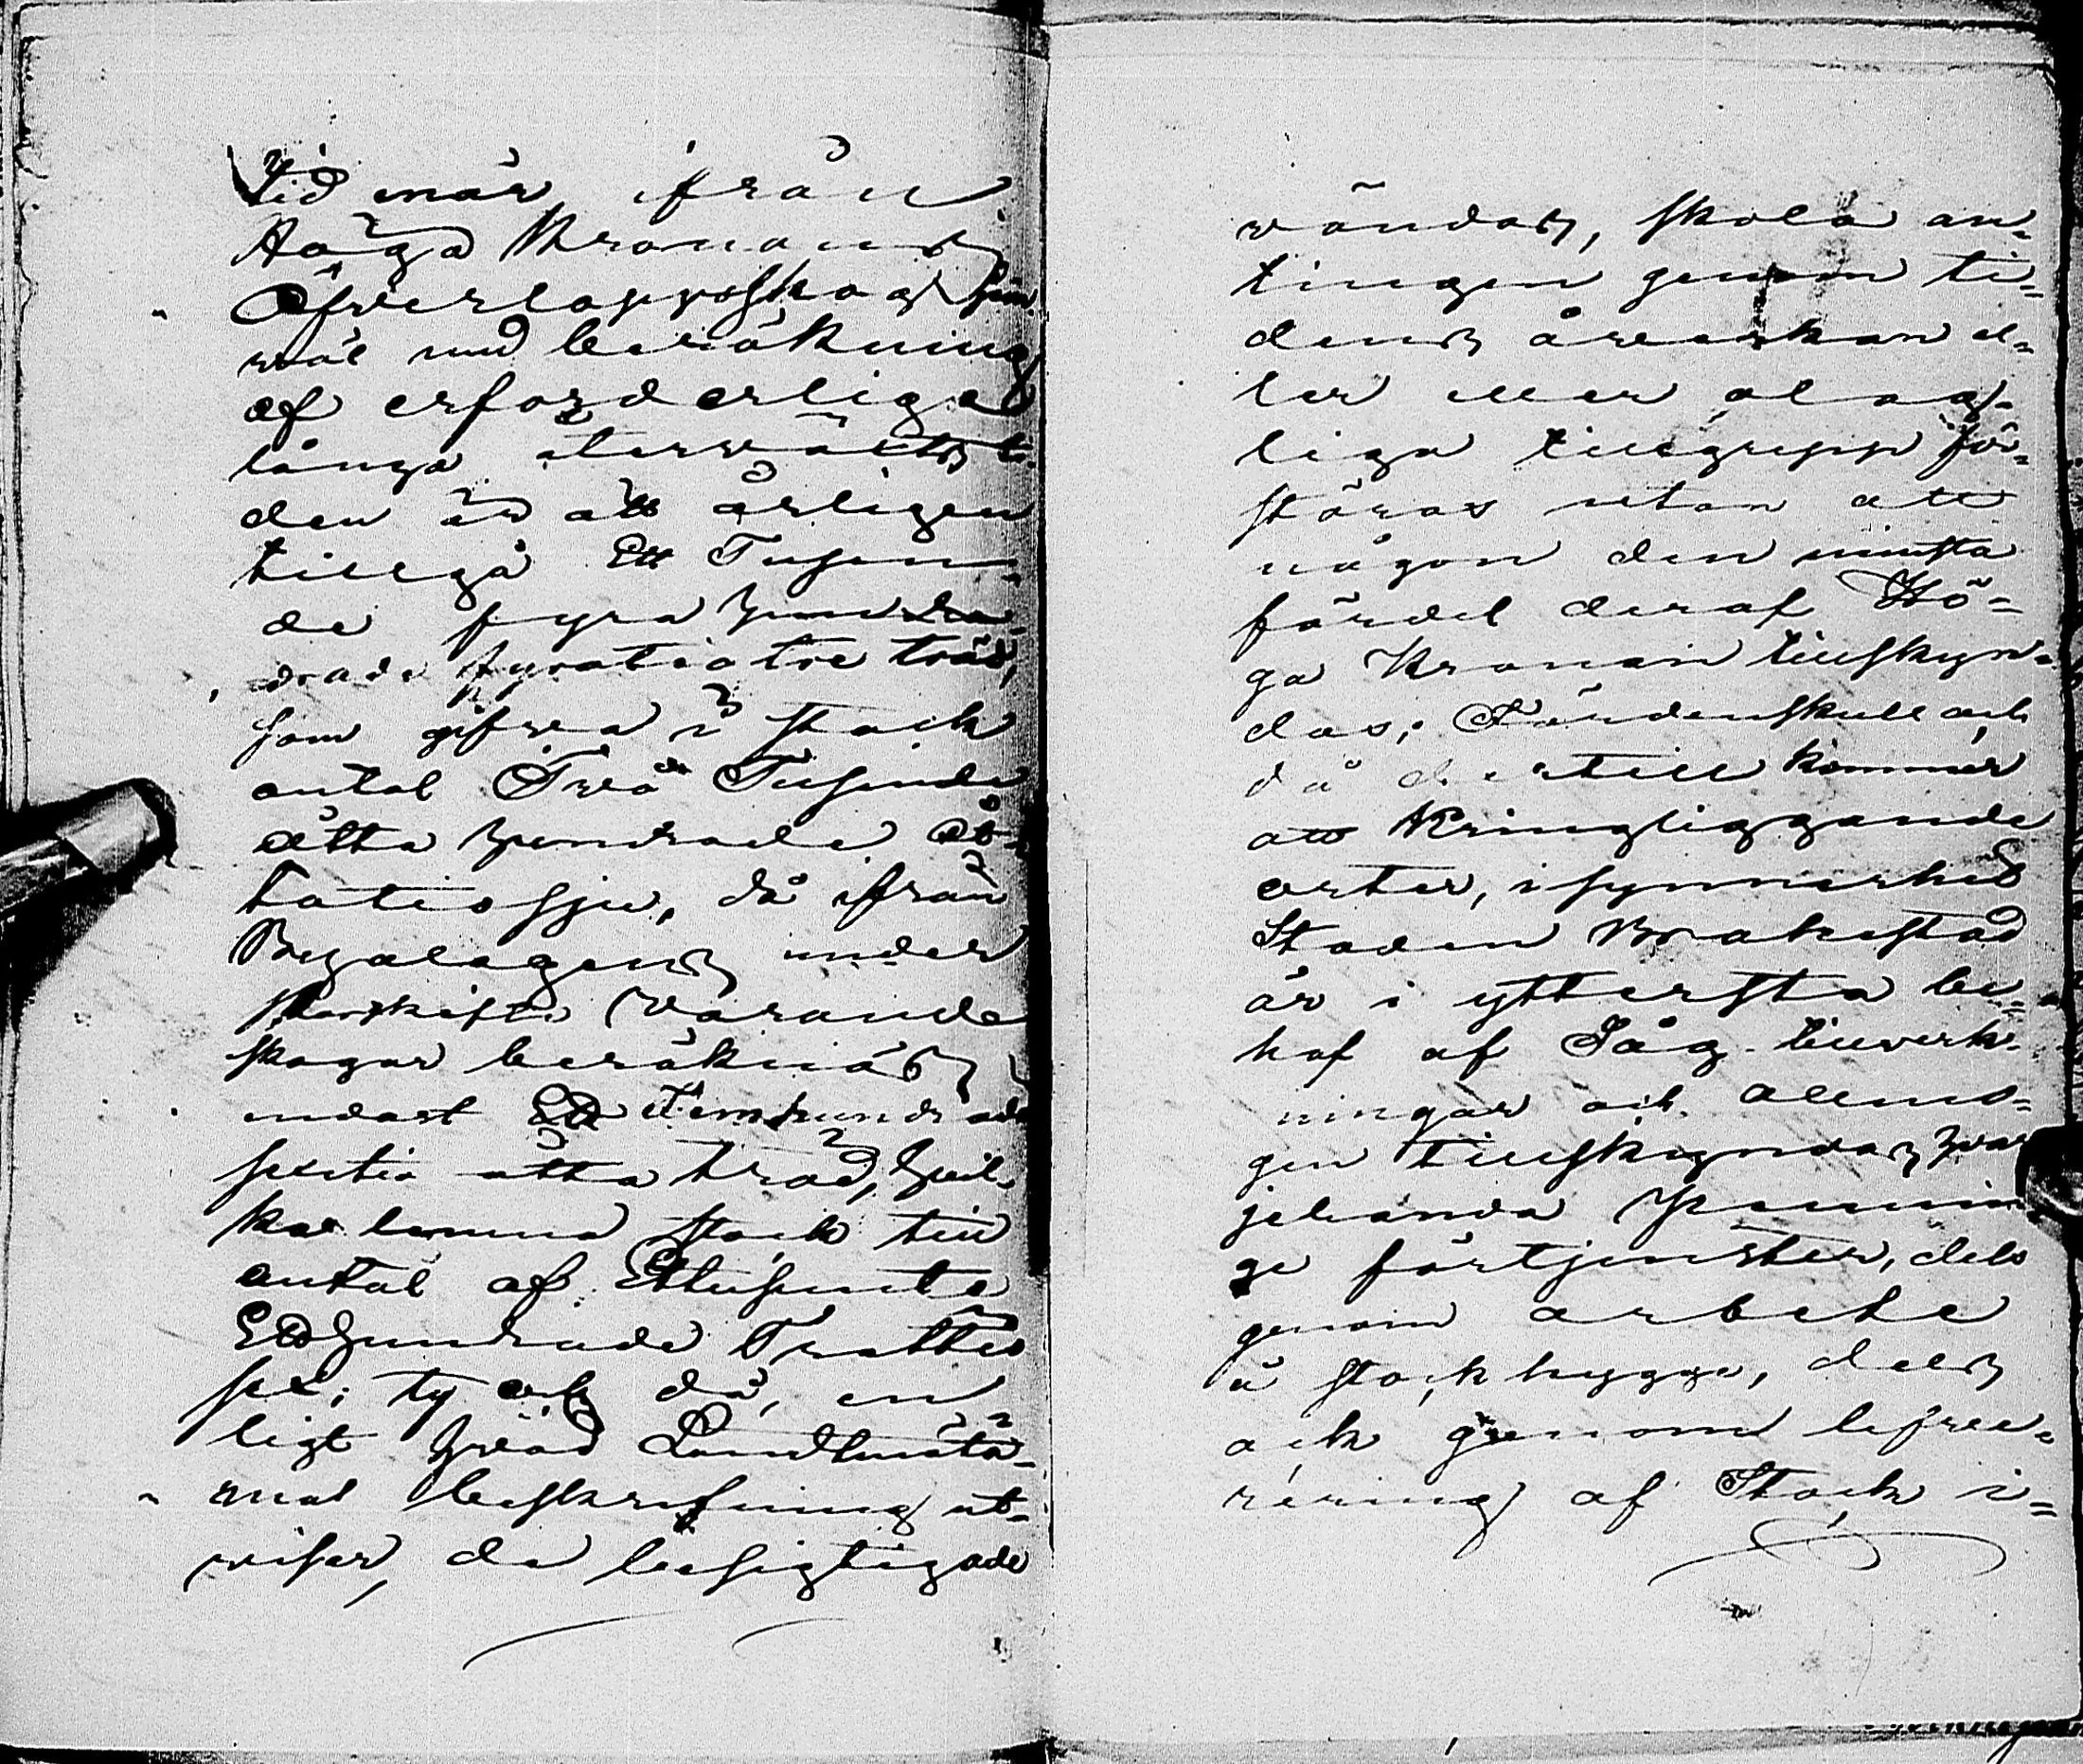 tid när ifrån
Höga Kronans
Öfverloppsskog
med beräkning
af erforderlige
långa återväxts ti-
den är att årligen
tillgå Ett Tusen-
de fyra hundra-
drade fyratiotre träd,
som gifva i stock
antal Två Tusende
åtta hundrade åt-
tatiosju, då ifrån
Byalagens under
Storskifte varande
skogar beräknas
endast Ett Femhundrade
sextio åtta träd, hvil-
ka lemna stock till
antal af Ettusente
Etthundrade Trettio
sex; ty och då, en-
ligt hvad Landtmäta-
rnas beskrifning ut-
visar, de besigtigade
vändas, skola an-
tingen genom ti-
dens åverkan el-
ler eller olag-
liga tillgrepp för-
störas utan att
någon den minsta
fördel deraf Hö-
ga Kronan tillskyn-
das; Särdenskull och
då dertill kommer
att Kringliggande
orter, i synnerhed
Staden Brahestad
är i yttersta be-
hof af Såg-tillverk-
ningar och allmo-
gen tillskyndas
jehanda Pennin-
ge förtjenster, dels
genom arbete
å stockhygge, dels
ock genom lefve-
rering af Stock i-